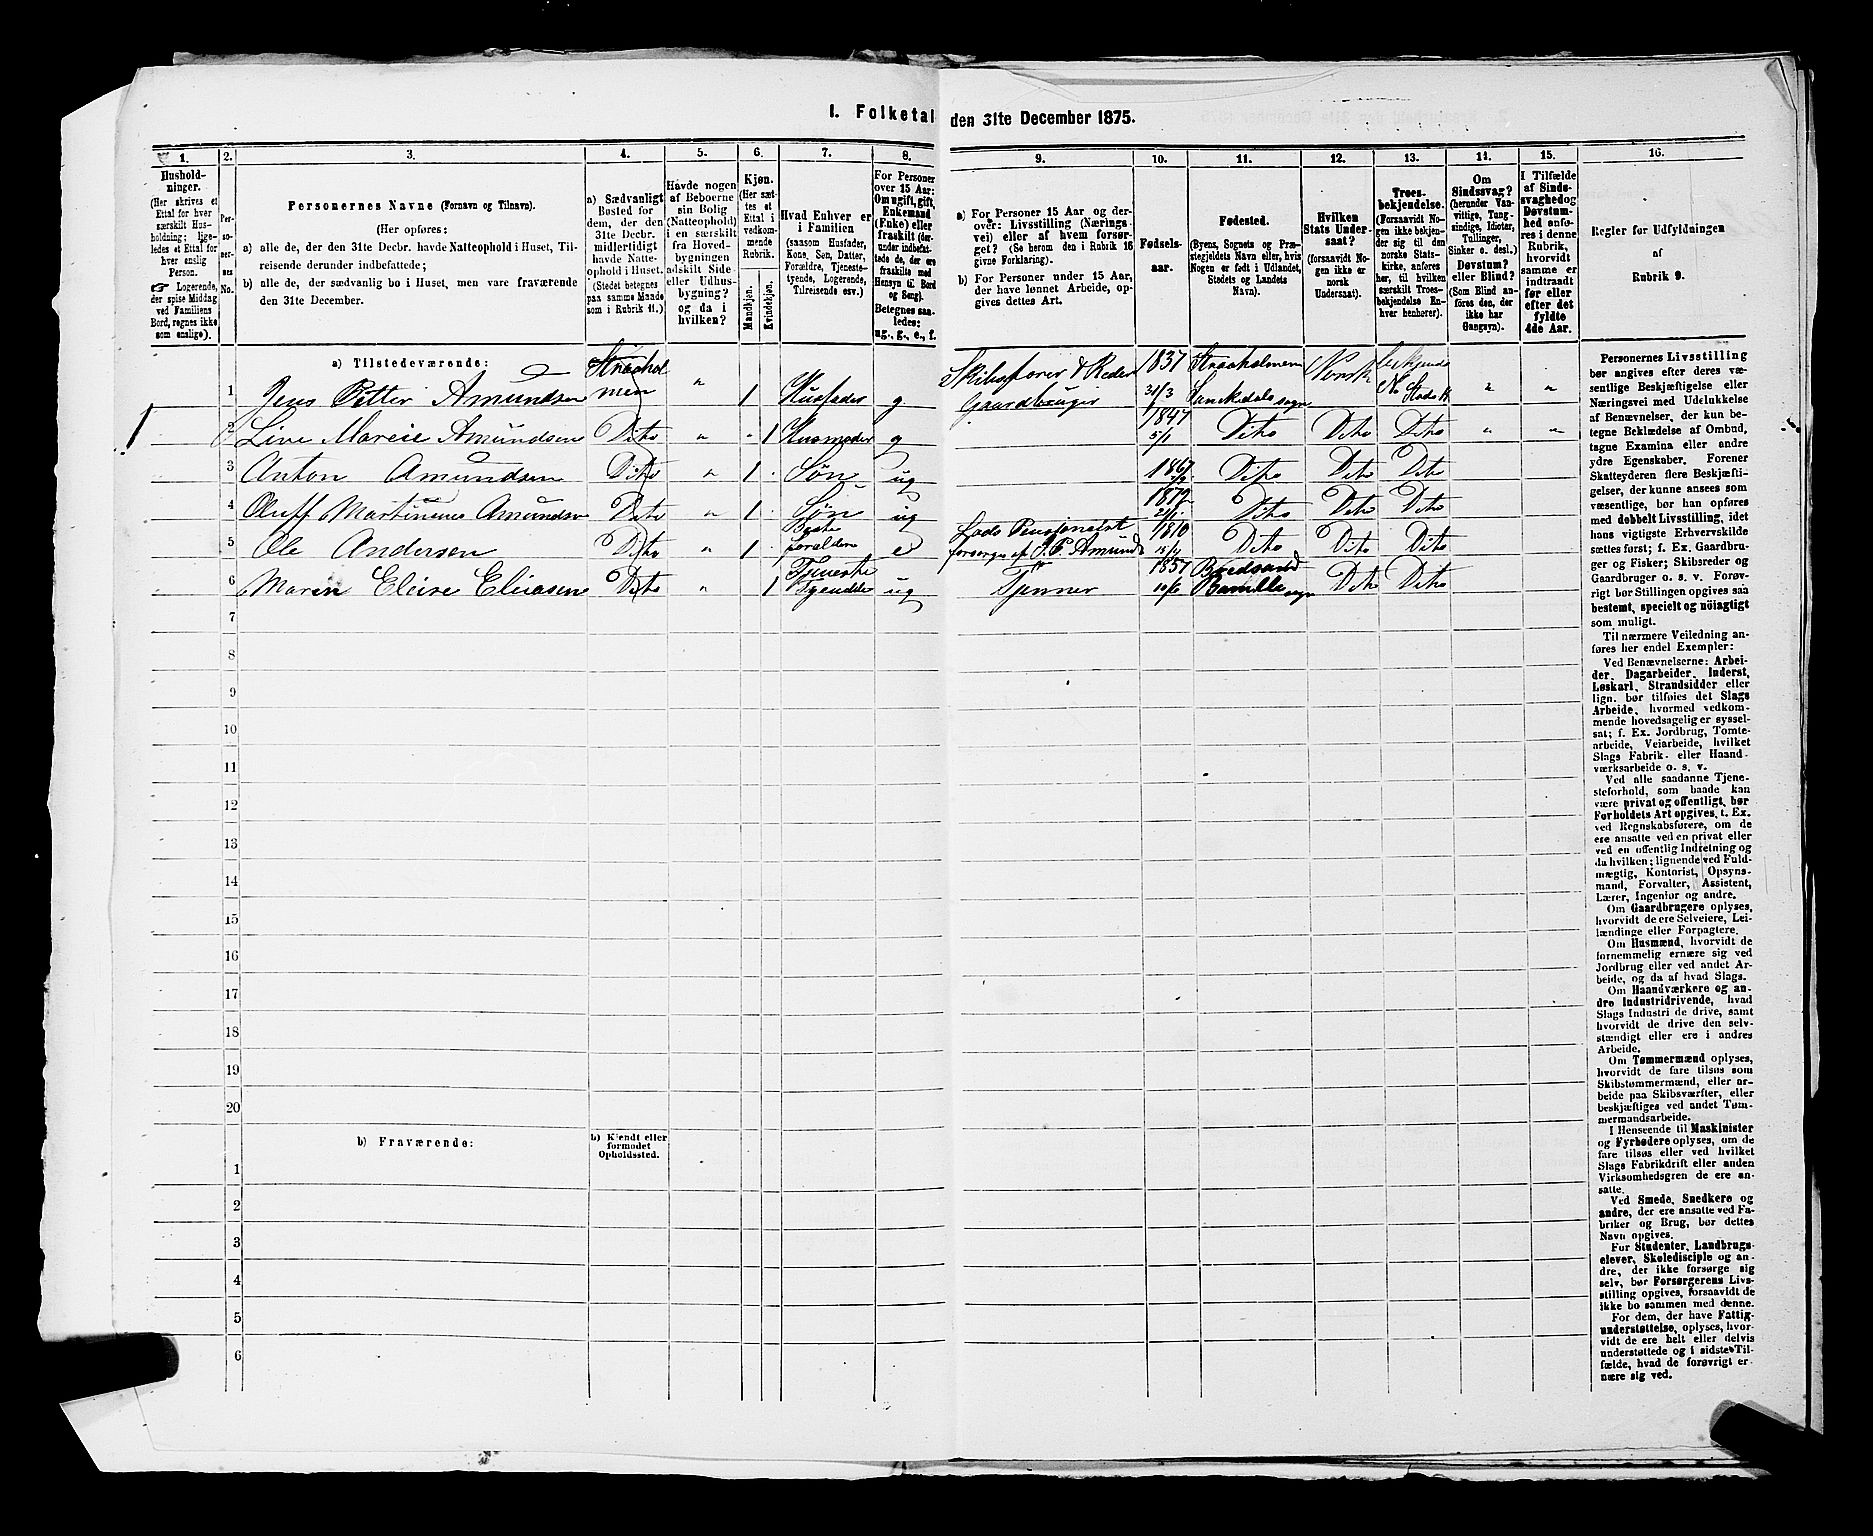 I. Folketal den 31te December 1875.
1. 2. 3. 4. 5. 6. 7. 8. 9. 10. 11. 12. 13. 14. 15. 16.
Husholdninger.
(Her skrives et
Ettal for hver
særskilt Hus-
holdning; lige-
ledes et Ettal for
hver enslig
Person.
☞ Logerende,
der spise Middag
ved Familiens
Bord, regnes ikke
som enslige).
Per-
so-
ner-
nes
No.
Personernes Navne (Fornavn og Tilnavn).
(Her opføres:
a) alle de, der den 31te Decbr. havde Natteophold i Huset, Til-
reisende derunder indbefattede;
b) alle de, der sædvanlig bo i Huset, men vare fraværende
den 31te December.
a) Sædvanligt
Bosted for
dem, der den
31te Decbr.
midlertidigt
havde Natte-
ophold i Huset.
(Stedet betegnes
paa samme Maade
som i Rubrik 11.)
Havde nogen
af Beboerne
sin Bolig
(Natteophold)
i en særskilt
fra Hoved-
bygningen
adskilt Side-
eller Udhus-
bygning?
og da i
hvilken?
Kjøn.
(Her sæt-
tes et
Ettal i
vedkom-
mende
Rubrik.
Mandkjøn.
Kvindekjøn.
Hvad Enhver er
i Familien
(saasom Husfader,
Kone, Søn, Datter,
Forældre, Tjeneste-
tyende, Logerende,
Tilreisende osv.)
For Personer
over 15 Aar:
Om ugift, gift,
Enkemand
(Enke) eller
fraskilt (der-
under indbefat-
tede de, der ere
fraskilte med
Hensyn til Bord
og Seng).
Betegnes saa-
ledes:
ug., g., e., f.
a) For Personer 15 Aar og der-
over: Livsstilling (Nærings-
vei) eller af hvem forsør-
get? (Se herom den i Rubrik 16
givne Forklaring).
b) For Personer under 15 Aar,
der have lønnet Arbeide, op-
gives dettes Art.
Fødsels-
aar.
Fødested.
(Byens, Sognets og Præ-
stegjeldets Navn eller, hvis
Nogen er født i Udlandet,
Stedets og Landets
Navn).
Hvilken
Stats Under-
saat?
(forsaavidt No-
gen ikke er
norsk
Undersaat).
Troes-
bekjendelse.
(Forsaavidt No-
gen ikke bekjen-
der sig til den
norske Stats-
kirke, anføres
her, til hvilken
særskilt Troes-
bekjendelse En-
hver henhører).
Om
Sindssvag?
(herunder Van-
vittige, Tung-
sindige, Idioter,
Tullinger,
Sinker o. desl.)
Døvstum?
eller Blind?
(Som Blind an-
føres den, der
ikke har
Gangsyn).
I Tilfælde
af Sinds-
svaghed og
Døvstum-
hed anfø-
res i denne
Rubrik,
hvorvidt
samme er
indtraadt
før eller
efter det
fyldte
4de Aar.
Regler for Udfyldningen
af
Rubrik 9.
a) Tilstedeværende:
1 Jens Petter Amundsen Straaholmen " 1 Husfader g Skibsfører & Reder Gaardbruger 1837 31/3 Straaholmen Sanckedals sogn Norsk
2 Line Mareie Amundsen Dito " " 1 Husmoder g 1847 5/1 Dito Dito Dito " "
3 Anton Amundsen Dito " 1 Søn ug 1867 Dito Dito Dito
4 Oluff Martinus Amundsen Dito " 1 Søn ug 1872 Dito Dito Dito
5 Ole Andersen Dito " 1 e Lods Pensjonelst forsørges af J. P. Amunds 1810 Dito Dito Dito
6 Maren Eleise Eliasen Dito " 1 Tjeneste ug Tjenner 1857 10/6 Bamble sogn Dito Dito
7
8
9
10
11
12
13
14
15
16
17
18
19
20
b) Fraværende:
b) Kjendt eller
formodet
Opholdssted.
1
2
3
4
5
6
Personernes Livsstilling
bør angives efter deres væ-
sentlige Beskjæftigelse eller
Næringsvei med Udelukkelse
af Benævnelser, der kun be-
tegne Beklædelse af Ombud,
tagne Examina eller andre
ydre Egenskaber. Forener
Skatteyderen flere Beskjæfti-
gelser, der kunne ansees som
væsentlige, bør han opføres
med dobbelt Livsstilling, idet
hans vigtigste Erhvervskilde
sættes først; f. Ex. Gaardbru-
ger og Fisker; Skibsreder og
Gaardbruger o. s. v. Forøv-
rigt bør Stillingen opgives saa
bestemt, specielt og nöiagtigt
som muligt.
Til nærmere Veiledning an-
føres her endel Exempler:
Ved Benævnelserne: Arbei-
der, Dagarbeider, Inderst,
Løskarl, Strandsidder eller
lign. bør tilføies det Slags
Arbeide, hvormed vedkom-
mende hovedsagelig er syssel-
sat; f. Ex. Jordbrug, Tomte-
arbeide, Veiarbeide, hvilket
Slags Fabrik- eller Haand-
værksarbeide o. s. v.
Ved alle saadanne Tjene-
steforhold, som baade kan
være privat og offentligt, bør
Forholdets Art opgives, t. Ex.
ved Regnskabsførere, om de
ere ansatte ved en privat eller
ved en offentlig Indretning og
da hvilken; lignende ved Fuld-
mægtig, Kontorist, Opsyns-
mand, Forvalter, Assistent,
Lærer, Ingeniør og andre.
Om Gaardbrugere oplyses,
hvorvidt de ere Selveiere, Lei-
lændinge eller Forpagtere.
Om Husmænd, hvorvidt de
fornemmelig ernære sig ved
Jordbrug eller ved andet Ar-
beide, og da af hvad Slags.
Om Haandværkere og an-
dre Industridrivende, hvad
Slags Industri de drive, samt
hvorvidt de drive den selv-
stændigt eller ere i andres
Arbeide.
Om Tømmermænd oplyses,
hvorvidt de fare tilsøs som
Skibstømmermænd, eller ar-
beide paa Skibsværfter, eller
beskjæftiges ved andet Tøm-
mermandsarbeide.
I Henseende til Maskinister
og Fyrbødere oplyses, om de
fare tilsøs eller ved hvilket
Slags Fabrikdrift eller anden
Virksomhedsgren de ere an-
satte.
Ved Smede, Snedkere og
andre, der ere ansatte ved Fa-
briker og Brug, bør dettes
Navn opgives.
For Studenter, Landbrugs-
elever, Skoledisciple og an-
dre, der ikke forsørge sig
selv, bør Forsørgerens Livs-
stilling opgives, forsaavidt de
ikke bo sammen med denne.
For dem, der have Fattig-
understøttelse, oplyses, hvor-
vidt de ere helt eller delvis
understøttede og i sidste Til-
fælde, hvad de forøvrigt er-
nære sig ved.